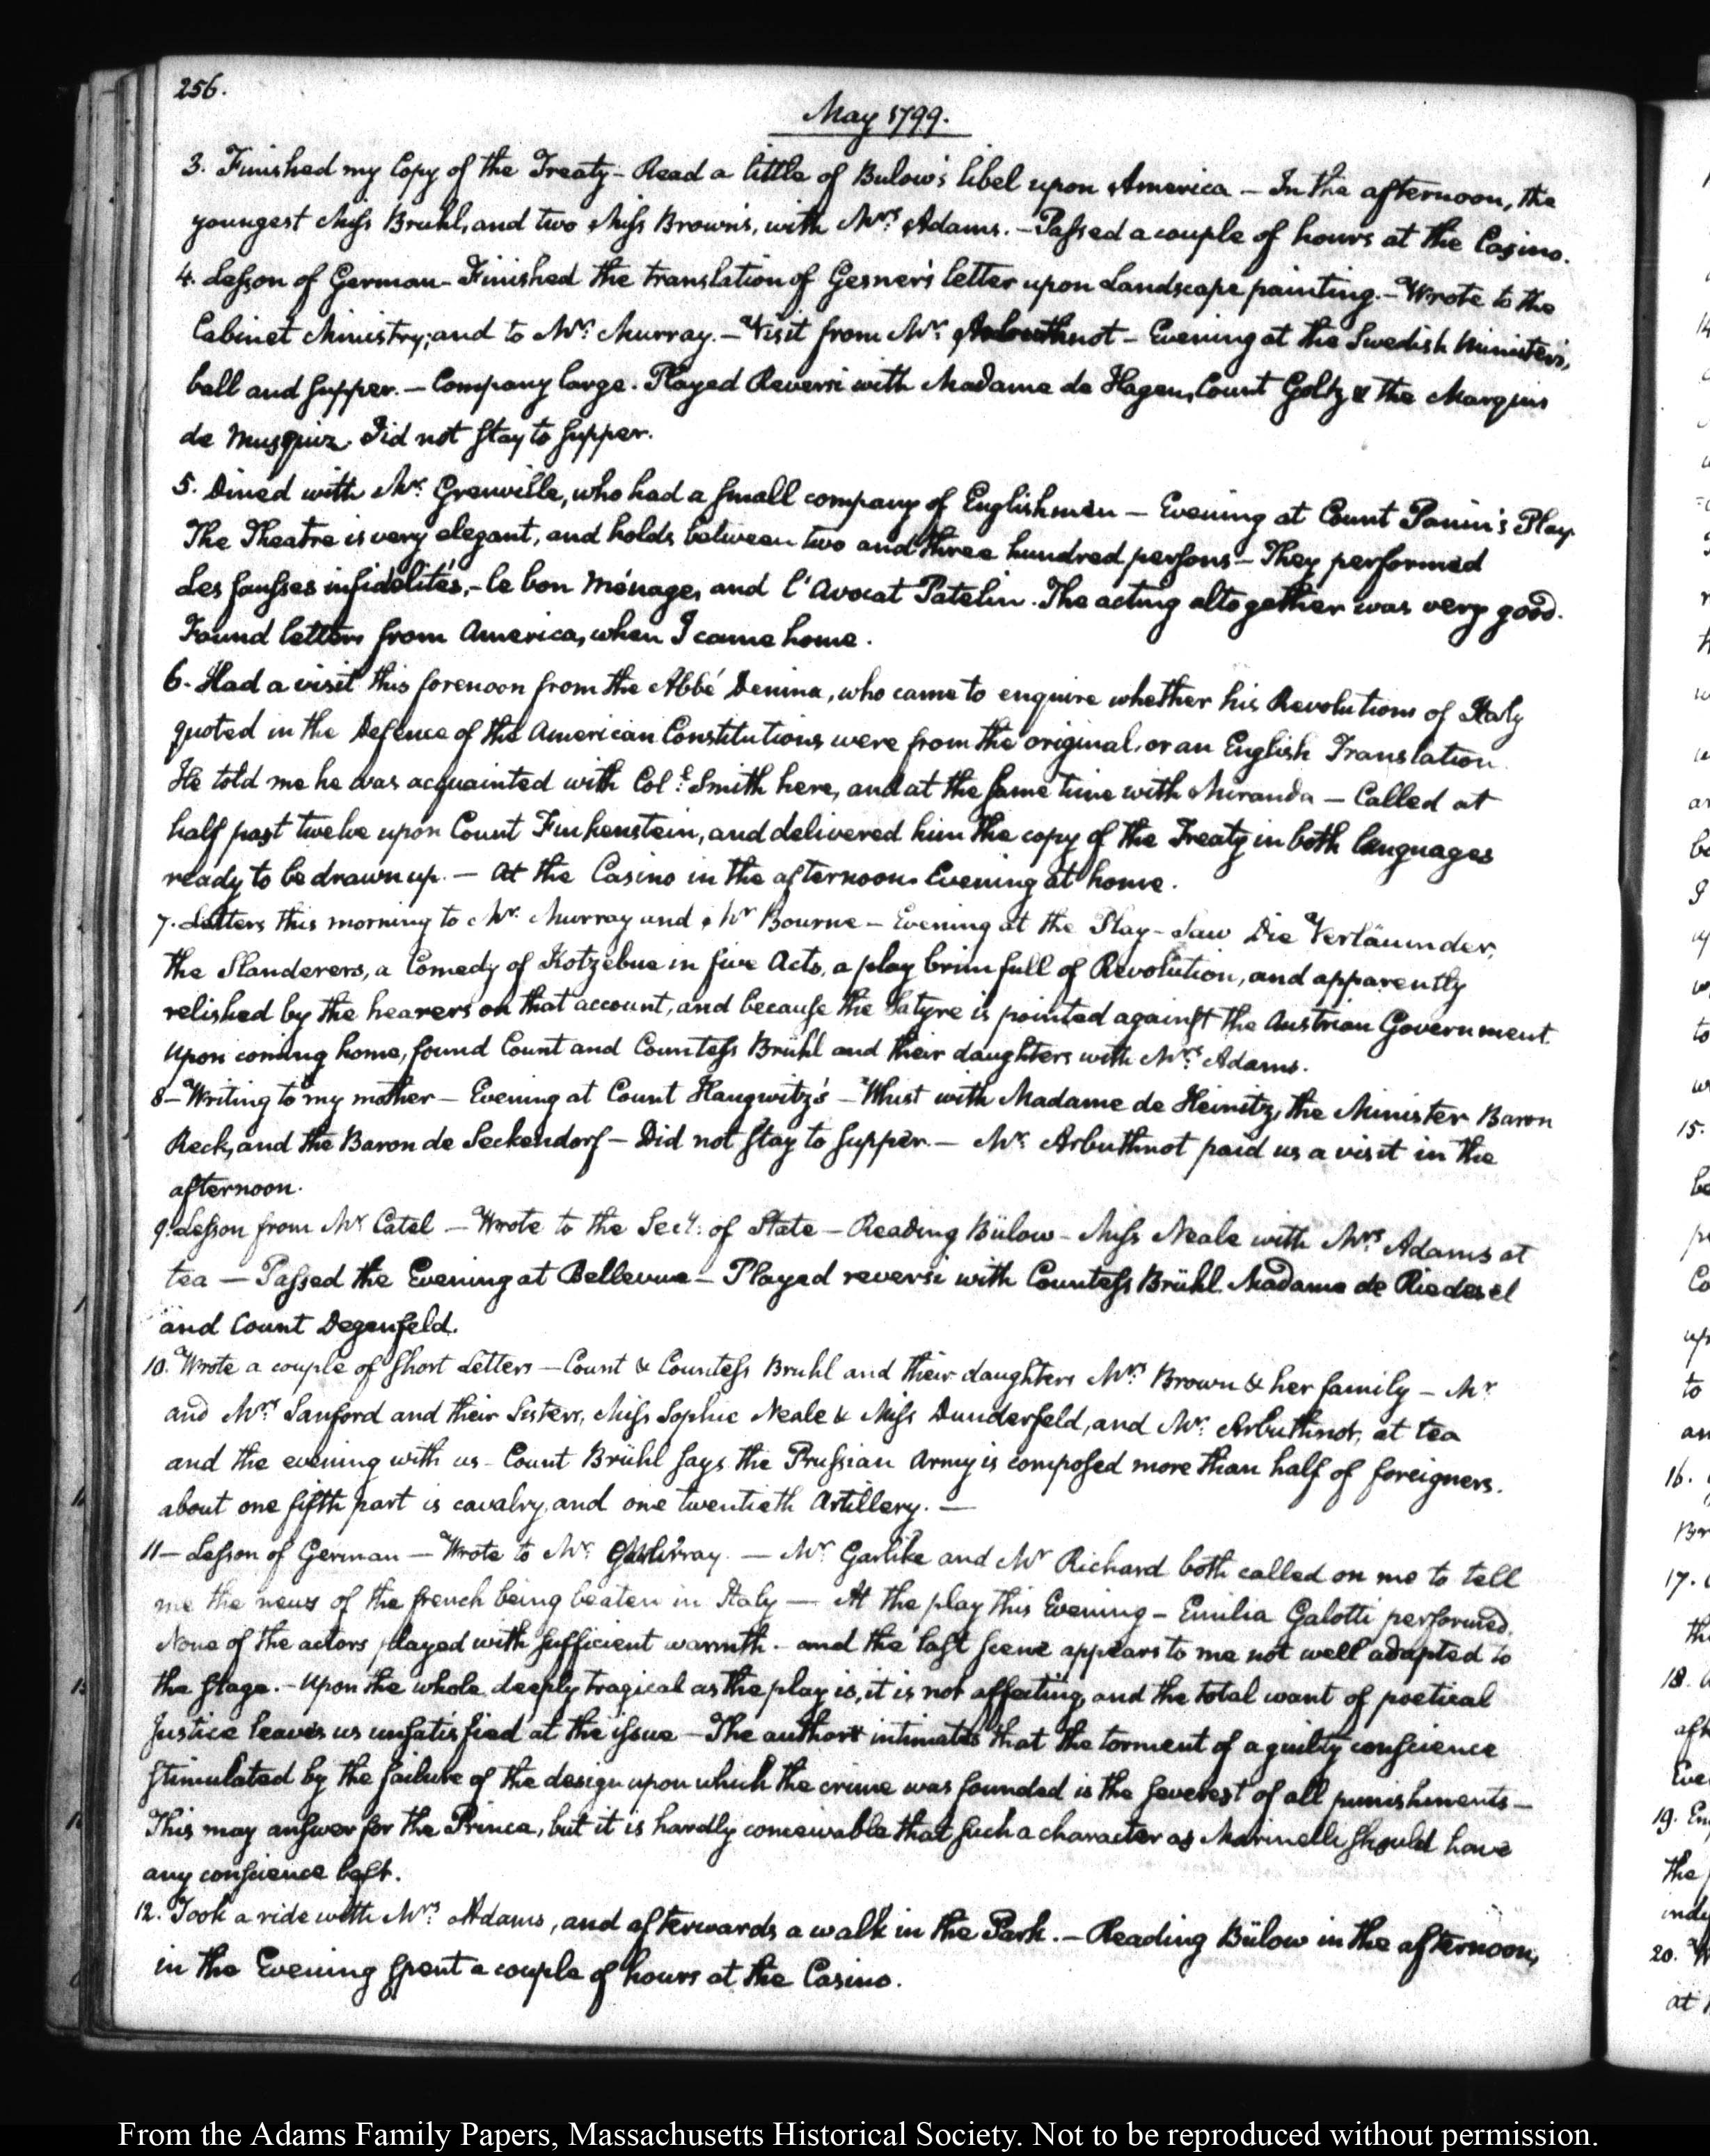 256.
May 1799.
3. Finished my Copy of the Treaty - Read a little of Bulow's libel upon America - In the afternoon, the
youngest Miss Bruhl, and two Miss Brown's, with Mrs. Adams. - Passed a couple of hours at the Casino.
4. Lesson of German - Finished the translation of Gesner's letter upon Landscape painting. - Wrote to the
Cabinet Ministry; and to Mr. Murray. - Visit from Mr. Arbuthnot - Evening at the Swedish Minister's,
ball and supper. - Company large. Played Reversi with Madame de Hagen, Count Goltz & the Marquis
de Musquiz. Did not stay to supper.
5. Dined with Mr. Grenville, who had a small company of Englishmen - Evening at Count Panin's Play.
The Theatre is very elegant, and holds between two and three hundred persons - They performed
Les fausses infidélités, - le bon Ménage, and l'Avocat Patelin. The acting altogether was very good.
Found letters from America, when I came home.
6. Had a visit this forenoon from the Abbé Denina, who came to enquire whether his Revolutions of Italy
quoted in the Defence of the American Constitutions were from the original, or an English Translation.
He told me he was acquainted with Coll. Smith here, and at the same time with Miranda - Called at
half past twelve upon Count Finkenstein, and delivered him the copy of the Treaty in both languages
ready to be drawn up. - At the Casino in the afternoon. Evening at home.
7. Letters this morning to Mr. Murray and Mr Bourne - Evening at the Play - Saw Die Verläumder,
the Slanderers, a Comedy of Kotzebue in five Acts, a play brim full of Revolution, and apparently
relished by the hearers on that account, and because the Satyre is pointed against the Austrian Government.
Upon coming home, found Count and Countess Brühl and their daughters with Mrs. Adams.
8 - Writing to my mother - Evening at Count Haugwitz's - Whist with Madame de Heinitz, the Minister Baron
Reck, and the Baron de Seckendorf - Did not stay to supper. - Mr. Arbuthnot paid us a visit in the
afternoon.
9. Lesson from Mr Catel - Wrote to the Secy. of State - Reading Bülow - Miss Neale with Mrs. Adams at
tea - Passed the Evening at Bellevue - Played reversi with Countess Brühl Madame de Riedesel
and Count Degenfeld.
10. Wrote a couple of short Letters - Count & Countess Bruhl and their daughters Mrs. Brown & her family - Mr
and Mrs. Sanford and their Sisters, Miss Sophie Neale & Miss Dunderfeld, and Mr. Arbuthnot, at tea
and the evening with us - Count Brühl says the Prussian Army is composed more than half of foreigners.
about one fifth part is cavalry, and one twentieth Artillery. -
11 - Lesson of German - Wrote to Mr. Murray. - Mr. Garlike and Mr Richard both called on me to tell
me the news of the french being beaten in Italy - At the play this Evening - Emilia Galotti performed.
None of the actors played with sufficient warmth - and the last scene appears to me not well adapted to
the stage. - Upon the whole deeply tragical as the play is, it is not affecting, and the total want of poetical
Justice leaves us unsatisfied at the issue - The author intimates that the torment of a guilty conscience
stimulated by the failure of the design upon which the crime was founded is the severest of all punishments -
This may answer for the Prince, but it is hardly conceivable that such a character as Marinelli should have
any conscience left.
12. Took a ride with Mrs. Adams, and afterwards a walk in the Park. - Reading Bülow in the afternoon,
in the Evening spent a couple of hours at the Casino.
From the Adams Family Papers, Massachusetts Historical Society. Not to be reproduced without permission.